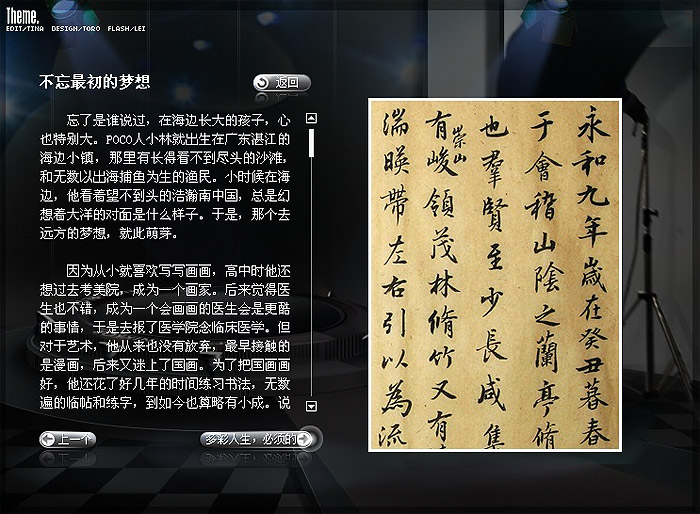 Theme.
EDIT/TINA DESIGN/TORO FLASH/LEI
不忘最初的梦想
返回
忘了是谁说过，在海边长大的孩子，心
也特别大。POCO人小林就出生在广东湛江的
海边小镇，那里有长得看不到尽头的沙滩，
和无数以出海捕鱼为生的渔民。小时候在海
边，他看着望不到头的浩瀚南中国，总是幻
想着大洋的对面是什么样子。于是，那个去
远方的梦想，就此萌芽。
因为从小就喜欢写写画画，高中时他还
想过去考美院，成为一个画家。后来觉得医
生也不错，成为一个会画画的医生会是更酷
的事情，于是去报了医学院念临床医学。但
对于艺术，他从来也没有放弃，最早接触的
是漫画，后来又迷上了国画。为了把国画画
好，他还花了好几年的时间练习书法，无数
遍的临帖和练字，到如今也算略有小成。说
上一个
多彩人生，必须的
永和九年歲在癸丑暮春
于會稽山陰之蘭亭脩
也羣賢至少長咸集
有崇山峻領茂林脩竹又有
湍暎帶左右引以為流